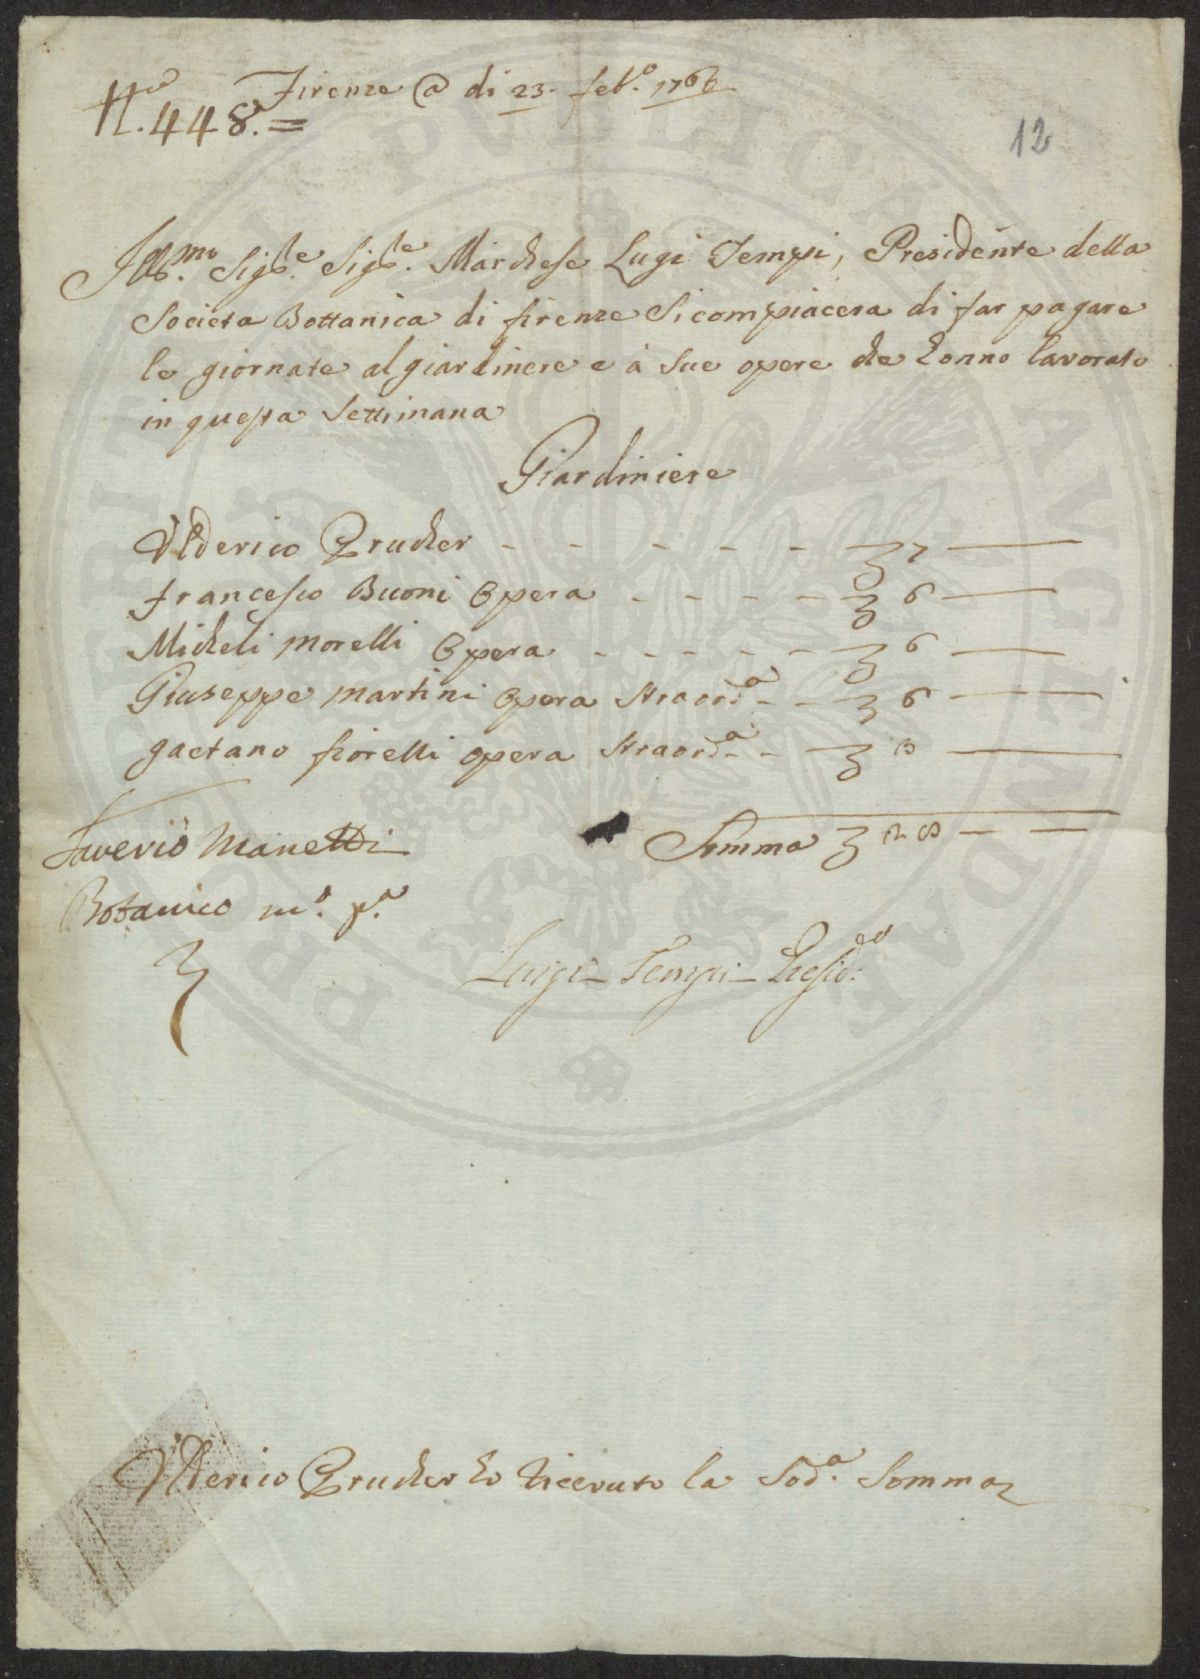 Firenze @ di 23. feb.º 1766
N.º 448. =
12
Ill.mo Sig.re Sig.re Marchese Lugi Tempi, Presidente della
Società Bottanica di firenze Si compiacera di far pagare
le giornate al giardinere e à Sue opere che honno lavorato
in questa Settimana
Giardiniere
Ulderico Prucher - - - - - 7 —
Francesco Buoni Opera - - - - 6 —
Micheli Morelli Opera - - - - - 6 —
Giuseppe Martini opera Straord.a - - 6 —
gaetano fiorelli opera Straord.a - - 3 —
Saverio Manetti
Somma 28 — —
Botanico m.º p.a
Luigi Tempi Presid.e
Ulderico Prucher ho riceuuto la Sod.a Somma